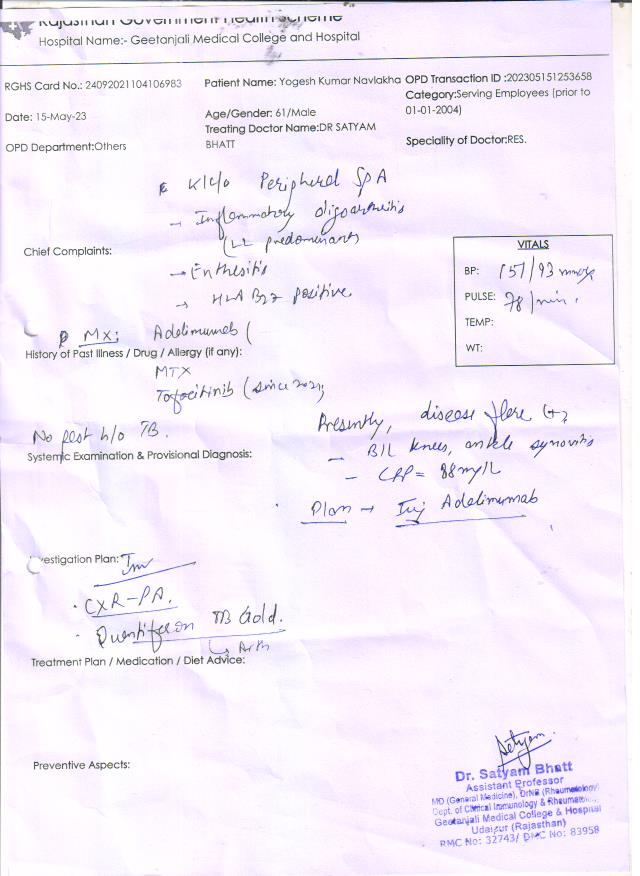 Rajasthan Government Health Scheme
Hospital Name:- Geetanjali Medical College and Hospital
RGHS Card No.: 24092021104106983
Patient Name: Yogesh Kumar Navlakha
OPD Transaction ID :202305151253658
Category:Serving Employees (prior to
01-01-2004)
Date: 15-May-23
Age/Gender: 61/Male
Treating Doctor Name:DR SATYAM
BHATT
Speciality of Doctor:RES.
OPD Department:Others
K/c/o Peripheral SpA
- Inflammatory oligoarthritis
(LL predominant)
Chief Complaints:
→ Enthesitis
→ HLA B27 positive
VITALS
BP: 157/93 mmHg
PULSE: 78/min.
TEMP:
WT:
MX: Adelimumab (
History of Past Illness / Drug / Allergy (if any):
MTX
Tofacitinib (since 2021)
No past h/o TB.
Systemic Examination & Provisional Diagnosis:
Presently, disease flare (+)
- B/L knees, ankle synovitis
- CRP = 88mg/L
Plan → Inj Adelimumab
Investigation Plan: Inv
· CXR-PA.
· Quantiferon TB Gold.
Treatment Plan / Medication / Diet Advice:
Preventive Aspects:
Satyam
Dr. Satyam Bhatt
Assistant Professor
MD (General Medicine), DrNB (Rheumatology)
Dept. of Clinical Immunology & Rheumat
Geetanjali Medical College & Hospital
Udaipur (Rajasthan)
RMC No: 32743/ DMC No: 83958